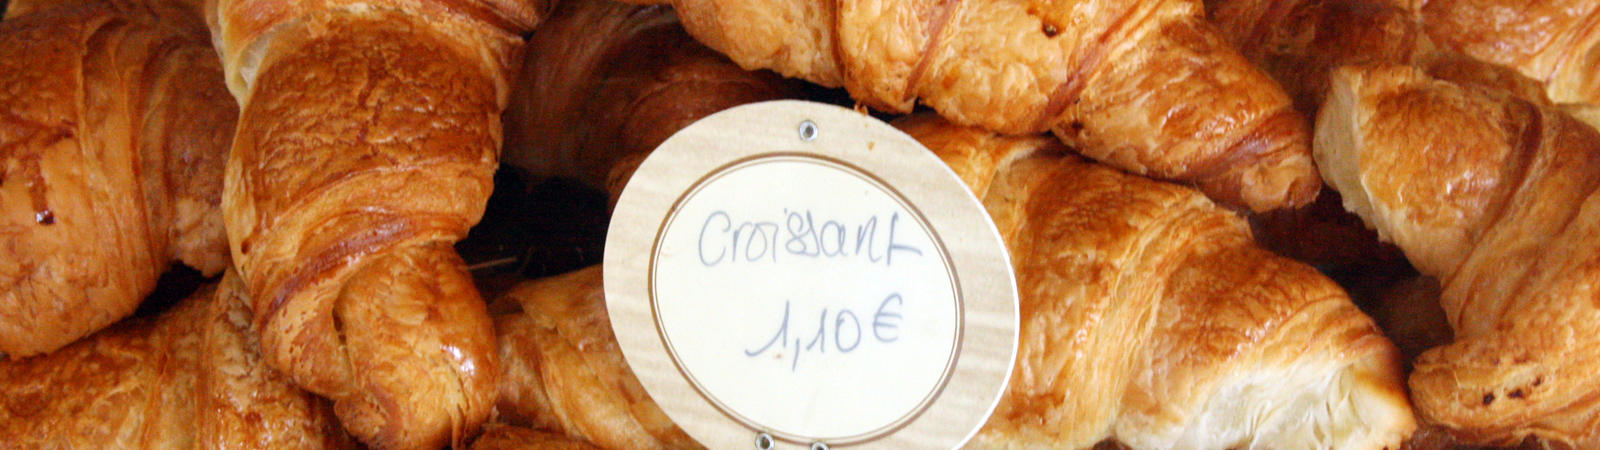 Croissant
1,10€